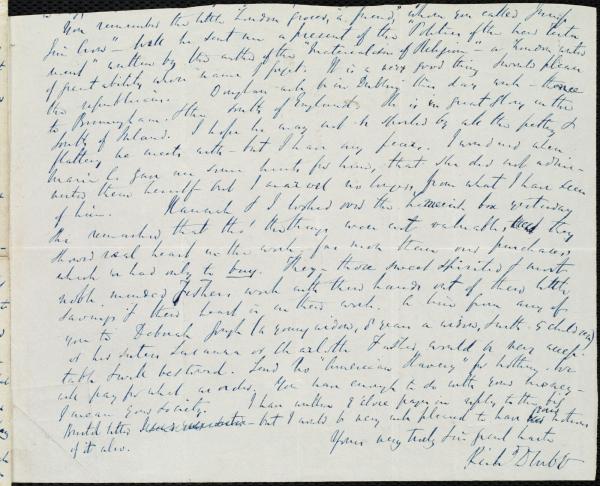 You remember the little London grocer, "a friend," whom you called Jump
Jim Crow" - Well he sent me a present of the "Politics of the New Testa
ment" written by the author of the "Materialism of Religion" - a London writer
of great ability whose name I forget. It is a very good thing & would please
the republicans. Douglass will be in Dublin this day week - thence
to Birmingham & the South of England. He is in great play in the
South of Ireland. I hope he may not be spoiled by all the petting &
flattery he meets with - but I have my fears. I wondered when
Maria C. gave me some hints for him, that she did not admin-
ister them herself but I marvel no longer, from what I have seen
of him. Hannah & I looked over the box yesterday
She remarked that tho' the things were not valuable, they
showed real heart in the work, far more than our purchases
which we had only to buy. They - those sweet spirited & most
noble minded Fishers work with their hands out of their little
savings & their heart is in their work. A line from any of
you to Deborah Joseph (a young widow, & quan a widow, with 4 children)
or his sisters Susanna or Charlotte Fisher, would be very accep-
table & well bestowed. Send no "American Slavery" for nothing. We
will pay for what we order. You have enough to do with your money -
I mean your Society. I have written 4 close pages in reply to the
but I would be very well pleased to have notices
of it also. Yours very truly in great haste
Rich.d D Webb